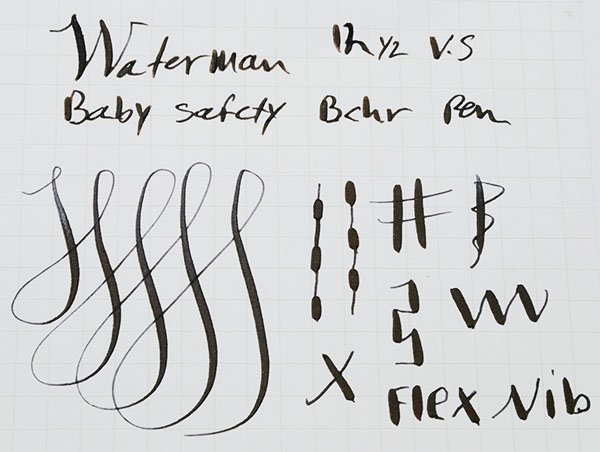 Waterman 12 1/2 V.S
Baby safety Bchr Pen
X
Flex Nib